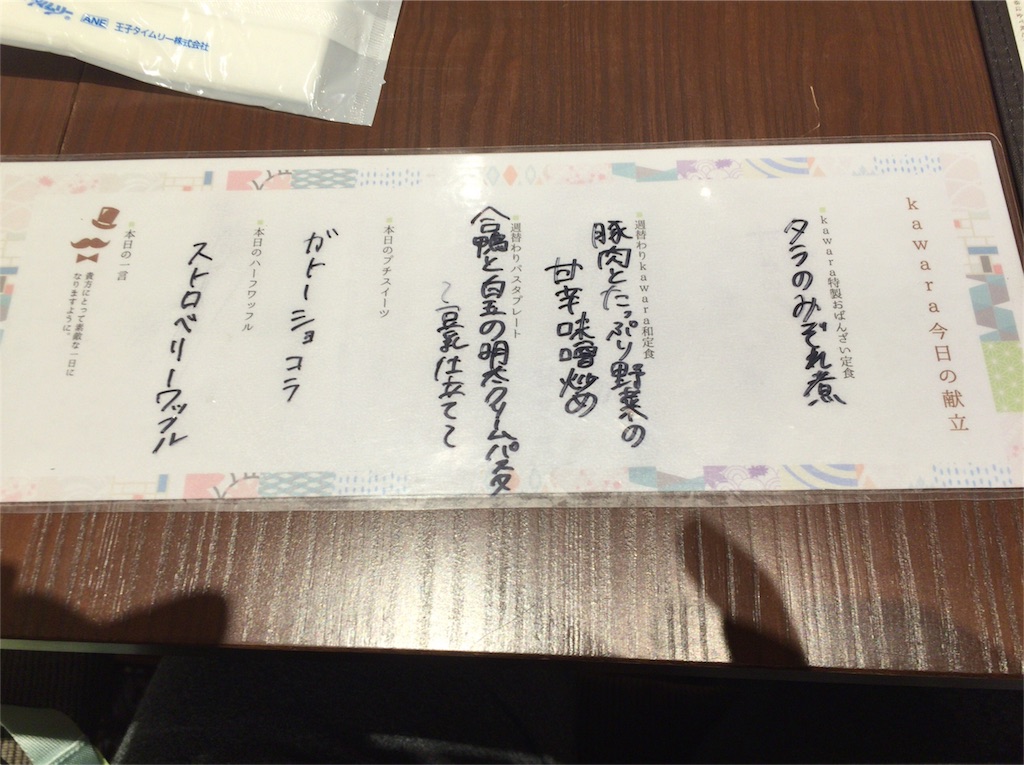 kawara今日の献立
kawara特製おばんざい定食
タラのみぞれ煮
週替わりkawara和定食
豚肉とたっぷり野菜の
甘辛味噌炒め
週替わりパスタプレート
合鴨と白玉の明太クリームパスタ
〜豆乳仕立て〜
本日のプチスイーツ
ガトーショコラ
本日のハーフワッフル
ストロベリーワッフル
本日の一言
貴方にとって素敵な一日に
なりますように、
ANE 王子タイムリー株式会社